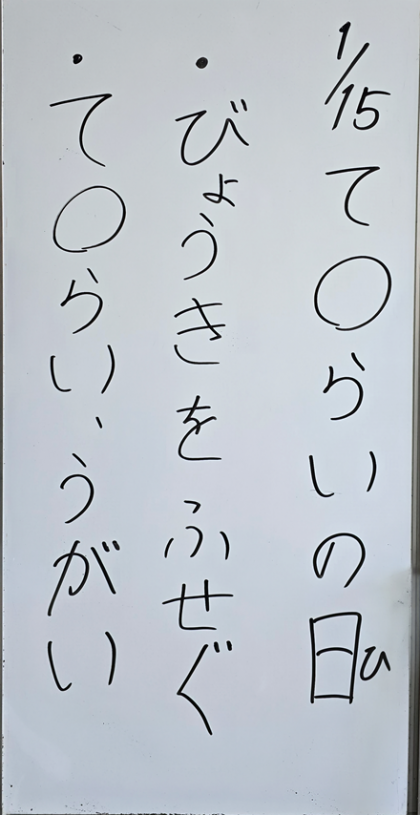 1/15 て〇らいの日ひ
・びょうきをふせぐ
・て〇らい、うがい